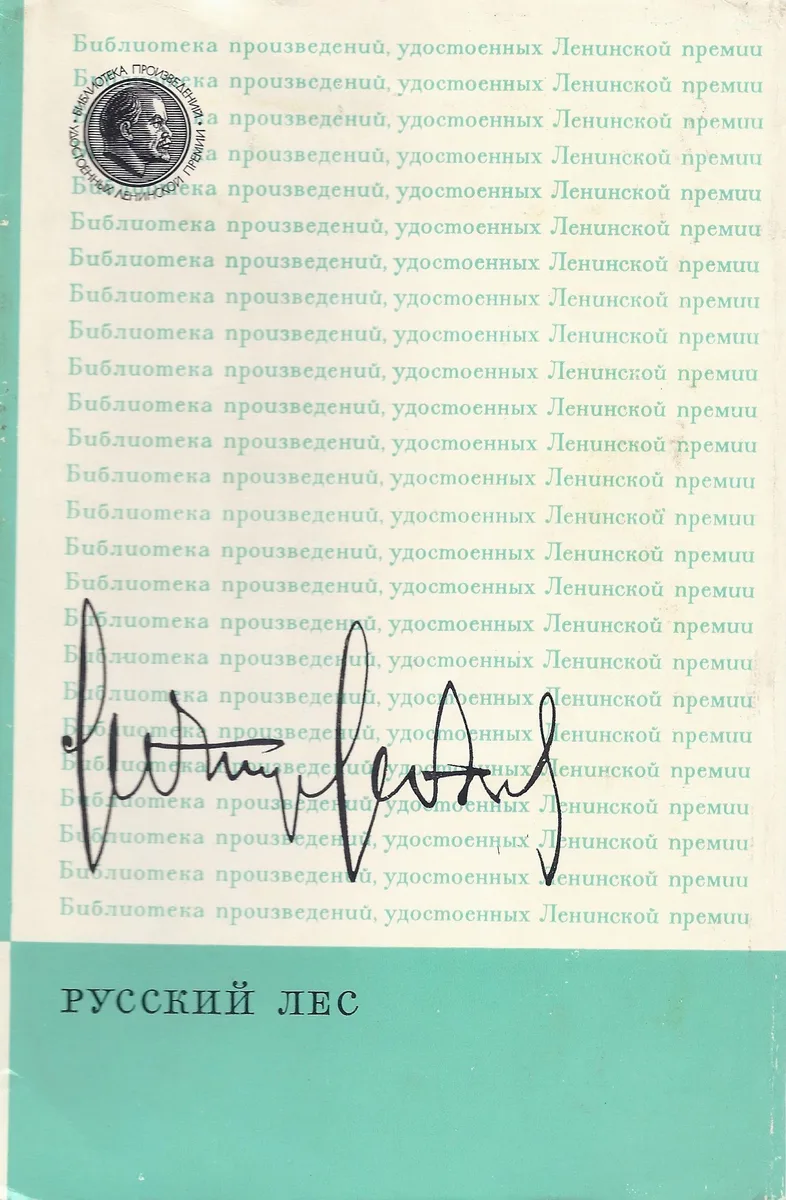 Библиотека произведений, удостоенных Ленинской премии
произведений, удостоенных Ленинской премии
произведений, удостоенных Ленинской премии
произведений, удостоенных Ленинской премии
Библиотека произведений, удостоенных Ленинской премии
БИБЛИОТЕКА ПРОИЗВЕДЕНИЙ • УДОСТОЕННЫХ ЛЕНИНСКОЙ ПРЕМИИ •
Библиотека произведений, удостоенных Ленинской премии
Библиотека произведений, удостоенных Ленинской премии
Библиотека произведений, удостоенных Ленинской премии
Библиотека произведений, удостоенных Ленинской премии
Библиотека произведений, удостоенных Ленинской премии
Библиотека произведений, удостоенных Ленинской премии
Библиотека произведений, удостоенных Ленинской премии
Библиотека произведений, удостоенных Ленинской премии
Библиотека произведений, удостоенных Ленинской премии
Библиотека произведений, удостоенных Ленинской премии
Библиотека произведений, удостоенных Ленинской премии
Библиотека произведений, удостоенных Ленинской премии
Библиотека произведений, удостоенных Ленинской премии
Библиотека произведений, удостоенных Ленинской премии
Библиотека произведений, удостоенных Ленинской премии
Библиотека произведений, удостоенных Ленинской премии
Библиотека произведений, удостоенных Ленинской премии
Библиотека произведений, удостоенных Ленинской премии
Библиотека произведений, удостоенных Ленинской премии
Библиотека произведений, удостоенных Ленинской премии
РУССКИЙ ЛЕС